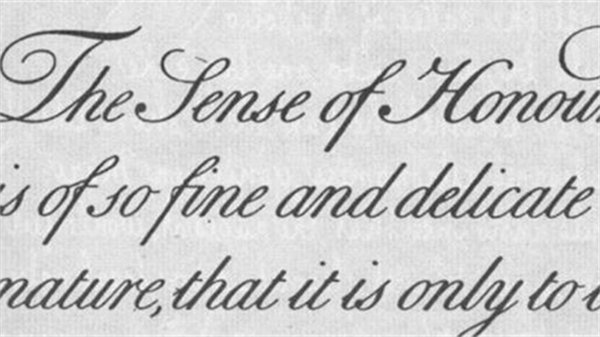 The Sense of Honour
is of so fine and delicate
nature, that it is only to